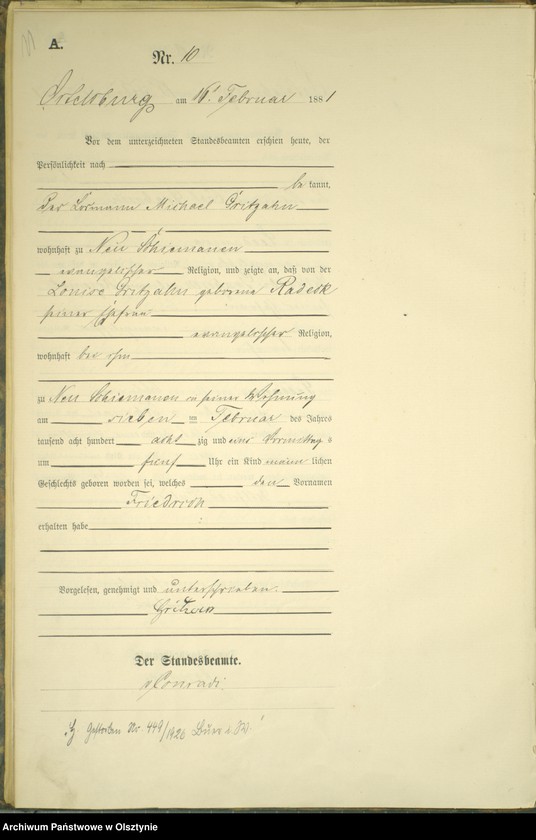 A.
Nr. 10
am 16. Februar 1881
Vor dem unterzeichneten Standesbeamten erschien heute, der
Persönlichkeit nach
be kannt,
Der Michael Gritzahn
wohnhaft zu Neu Schiemanen
evangelischer Religion, und zeigte an, daß von der
Louise Gritzahn geborene Radeck
seiner Ehefrau
evangelischer Religion,
wohnhaft bei ihm
zu Neu Schiemanen in seiner Wohnung
am sieben ten Februar des Jahres
tausend acht hundert acht zig und eins Vormittag s
um fuenf Uhr ein Kind maenn lichen
Geschlechts geboren worden sei, welches den Vornamen
Friedrich
erhalten habe
Vorgelesen, genehmigt und unterschrieben.
Der Standesbeamte.
Conradi
Gestorben Nr. 449/1926
Archiwum Państwowe w Olsztynie